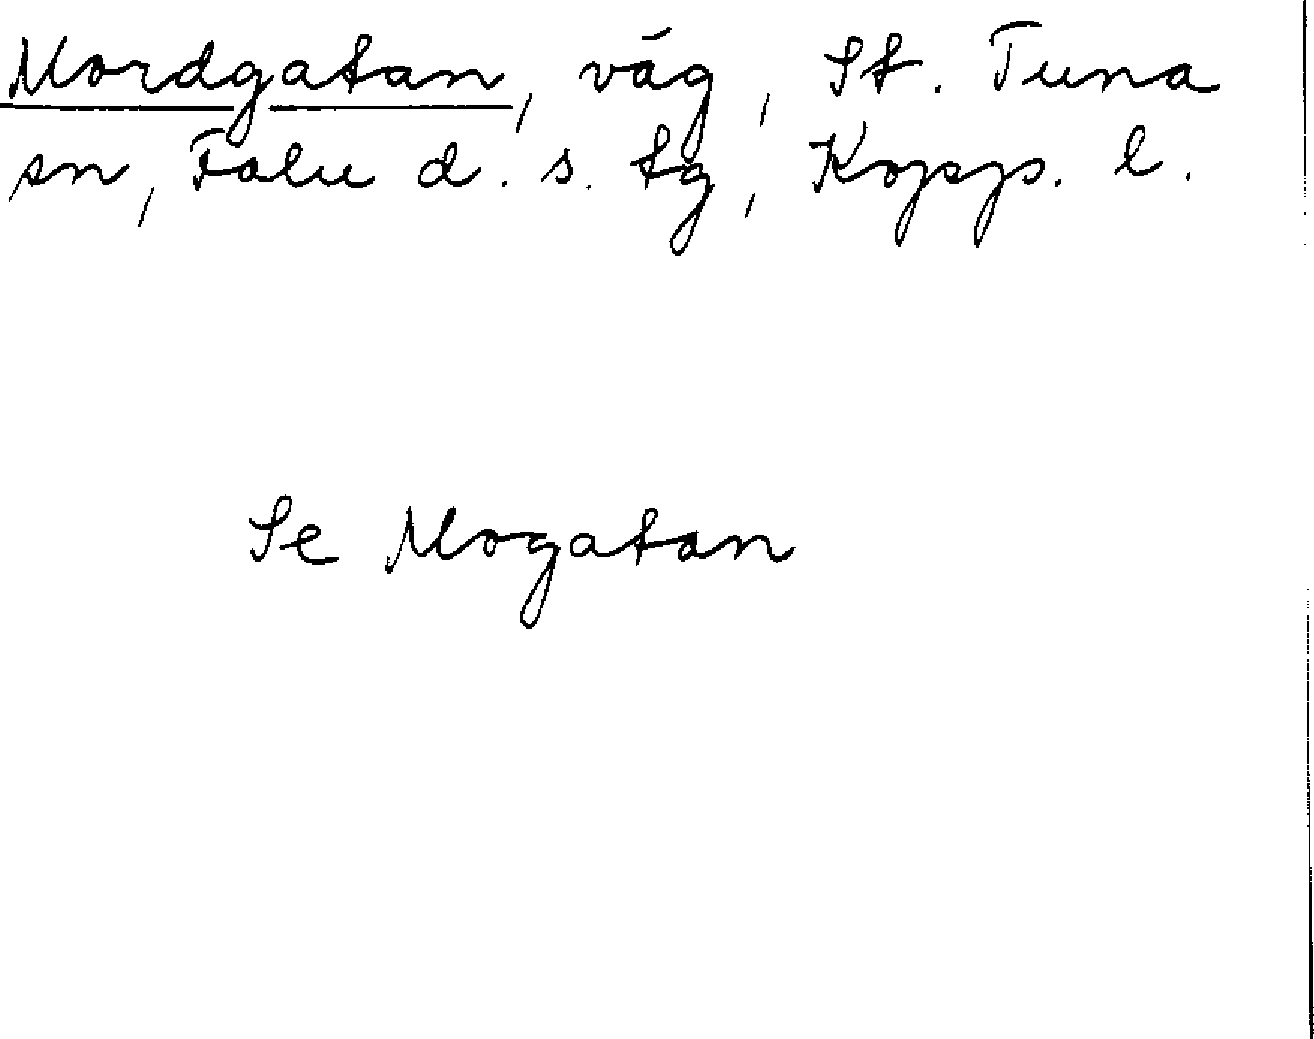 Mordgatan, väg, St. Tuna
sn, Falu d. s. tg, Kopp. l.
Se Mogatan